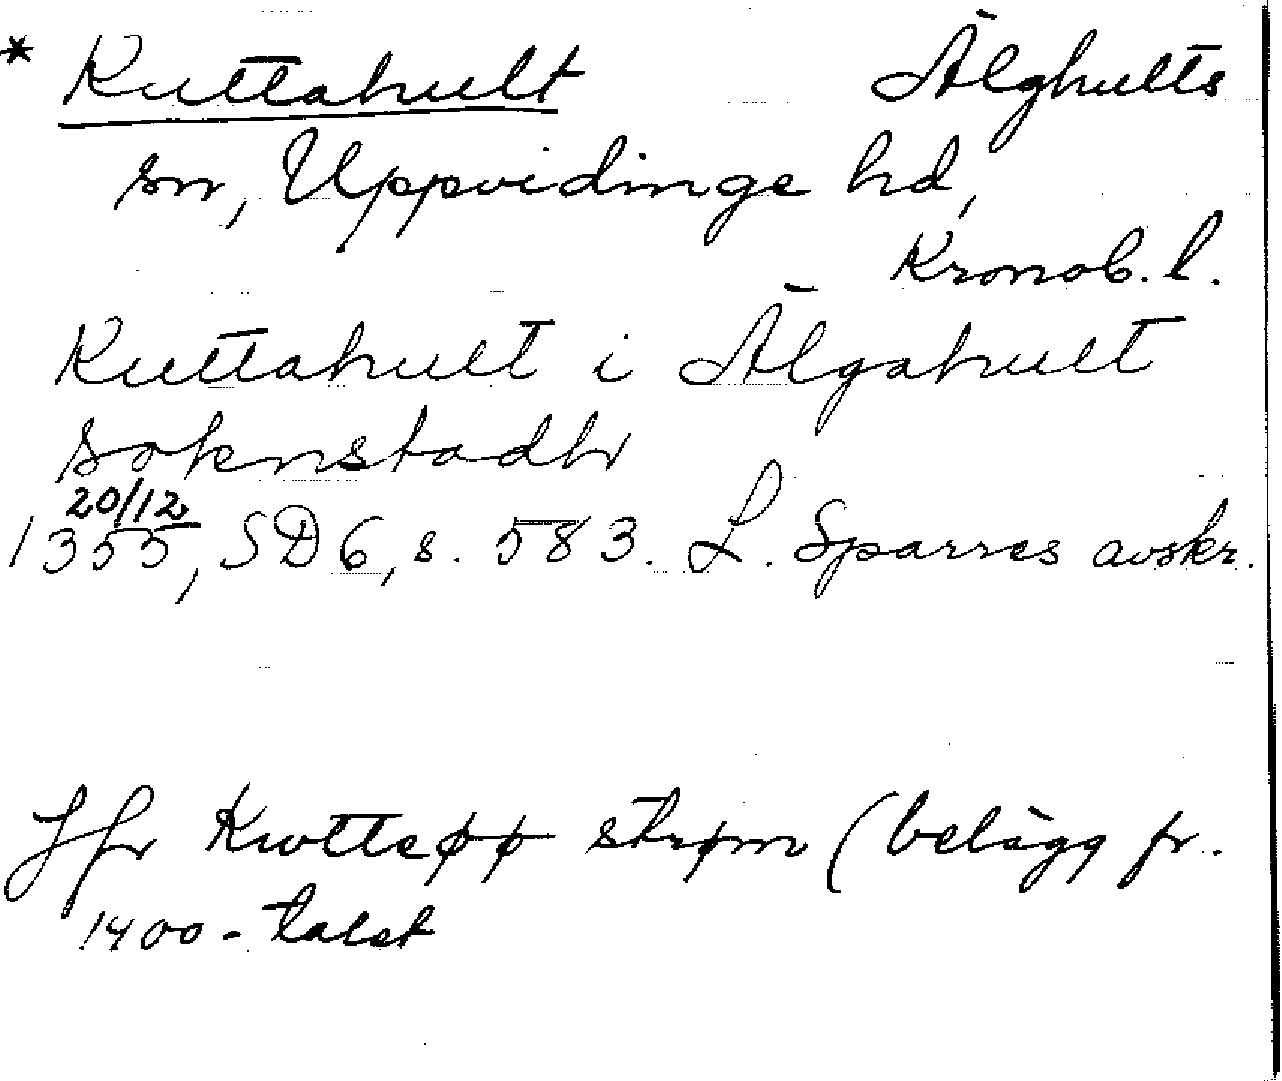 * Kuttahult Älghults
sn, Uppvidinge hd,
Kronob. l.
Kuttahult i Älgahult
soknstadh
20/12
1355, SD 6, s. 583. L. Sparres avskr.
Jfr Kwttepp strøm (belägg fr.
1400-talet